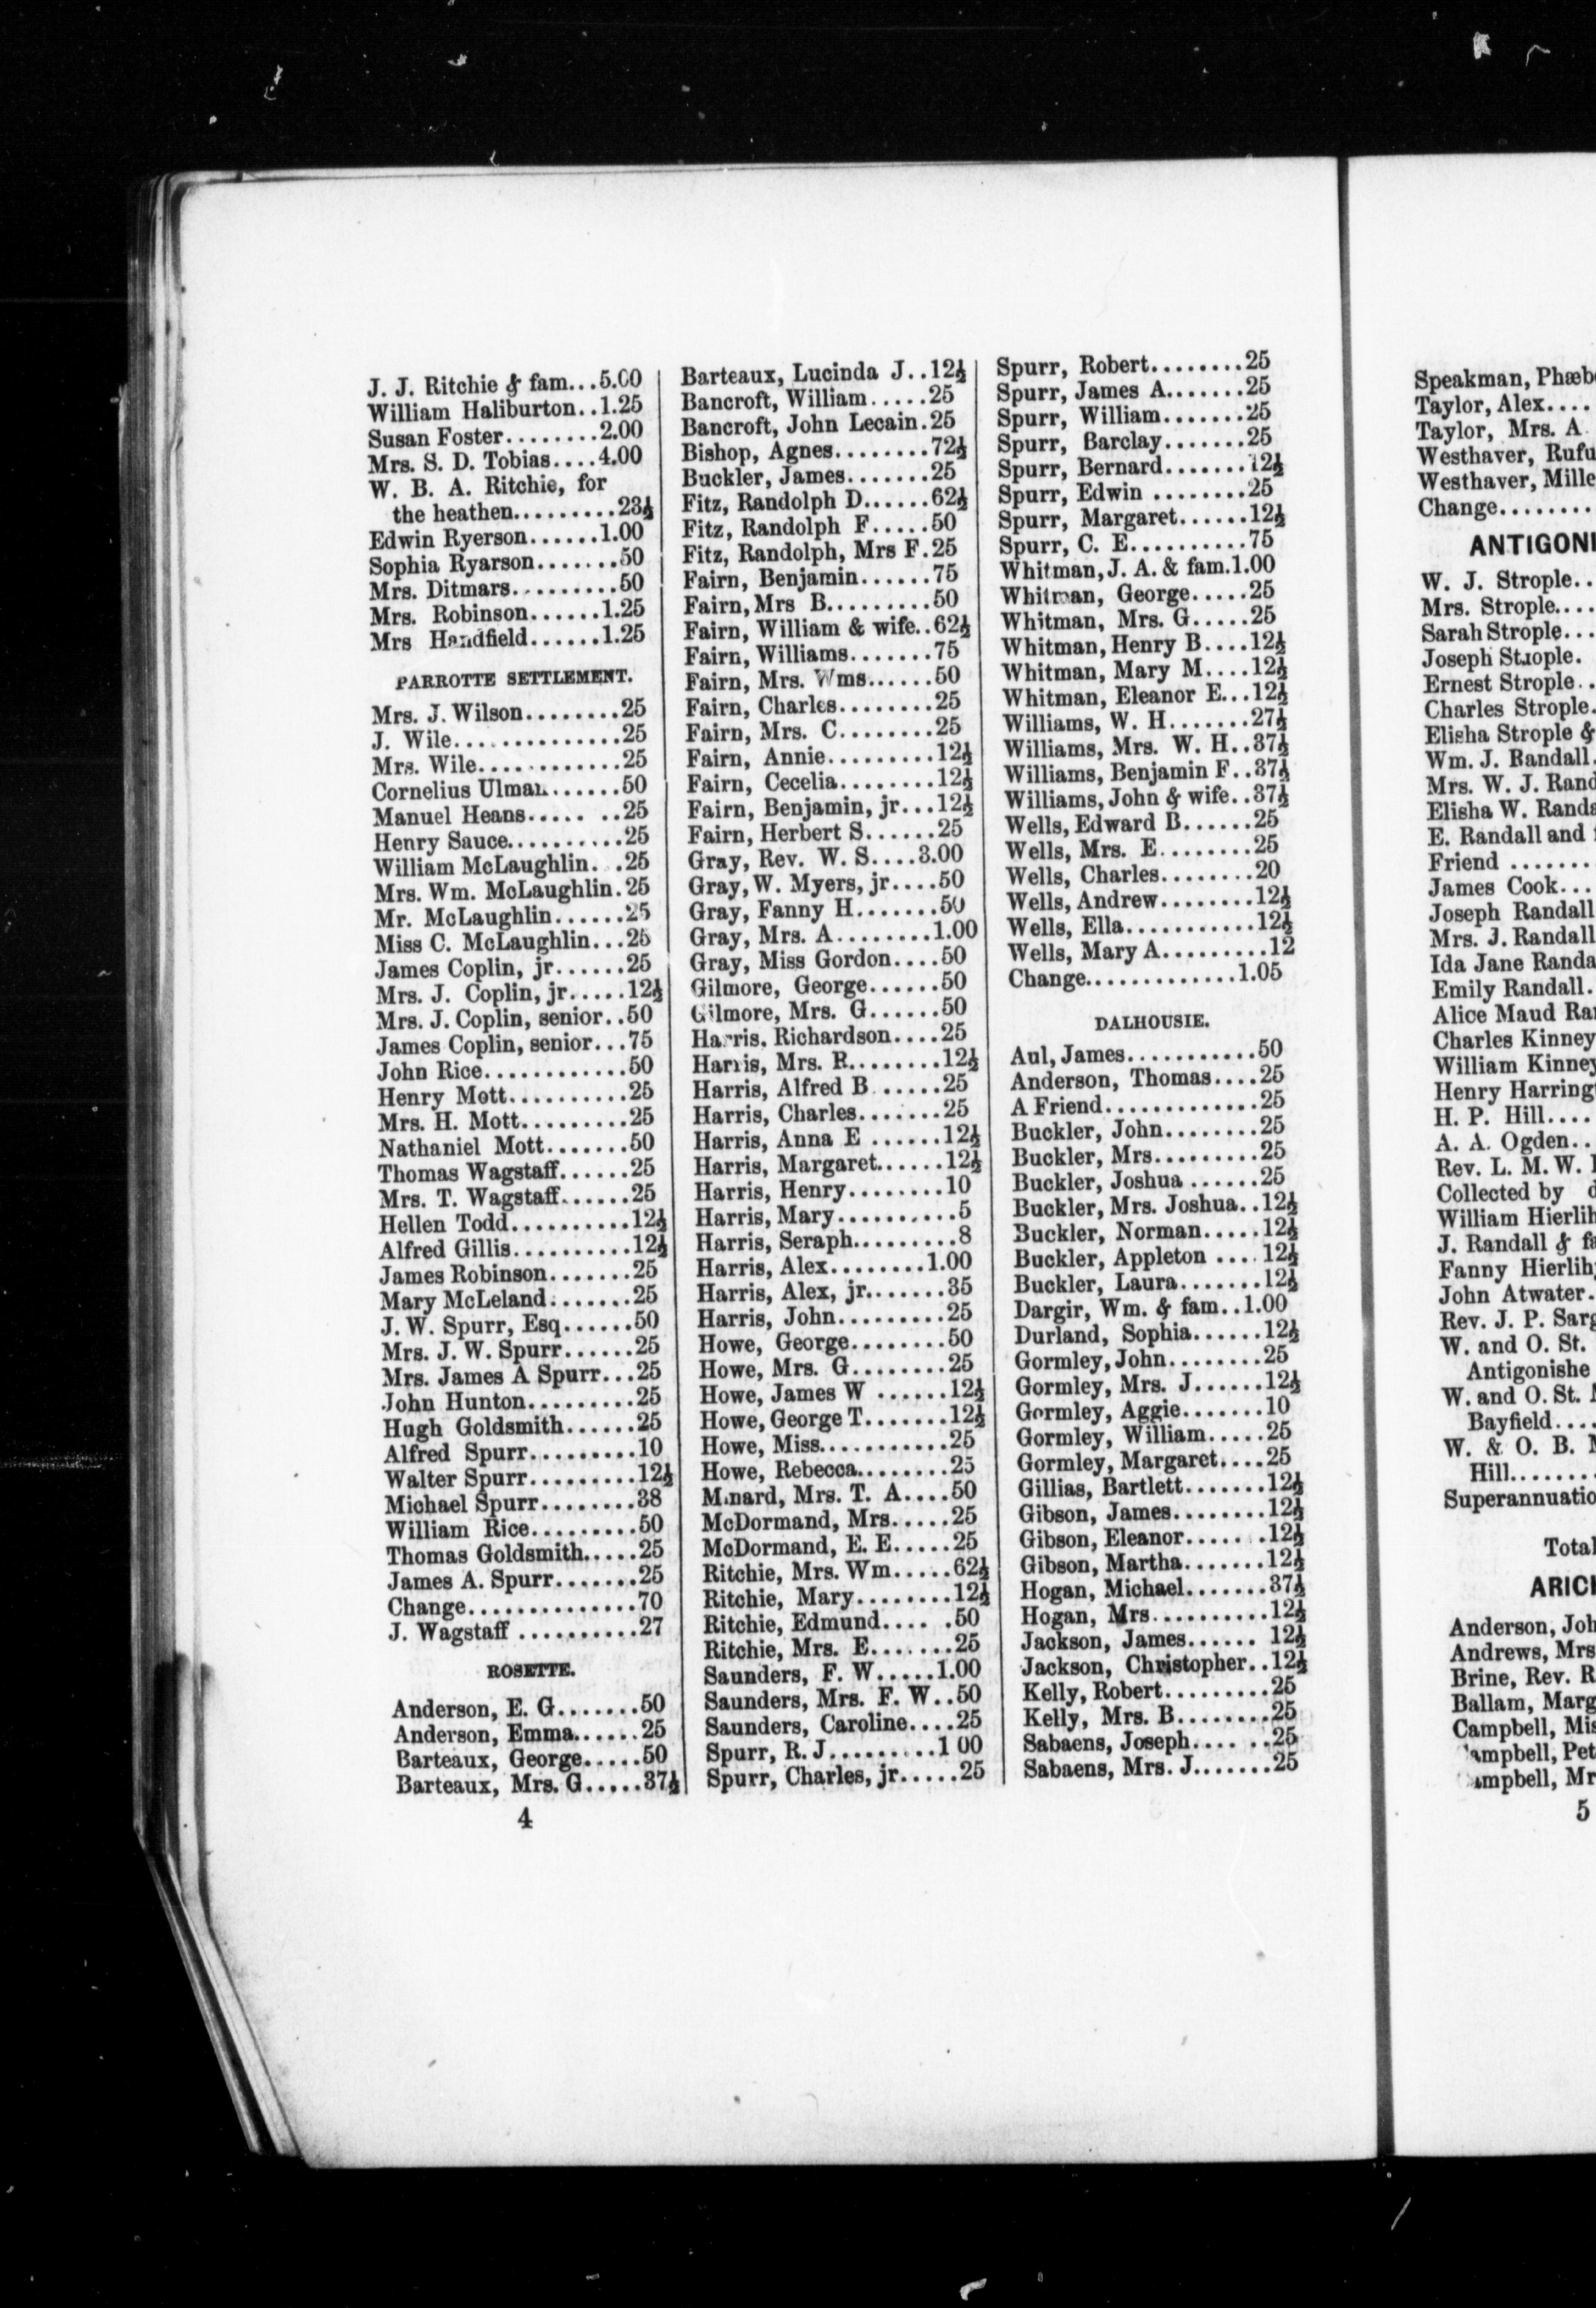 J. J. Ritchie & fam...5.00
William Haliburton..1.25
Susan Foster........2.00
Mrs. S. D. Tobias....4.00
W. B. A. Ritchie, for
the heathen.........23½
Edwin Ryerson......1.00
Sophia Ryarson.......50
Mrs. Ditmars.........50
Mrs. Robinson......1.25
Mrs Handfield......1.25
PARROTTE SETTLEMENT.
Mrs. J. Wilson........25
J. Wile..............25
Mrs. Wile............25
Cornelius Ulman......50
Manuel Heans..... ..25
Henry Sauce..........25
William McLaughlin. .25
Mrs. Wm. McLaughlin.25
Mr. McLaughlin......25
Miss C. McLaughlin...25
James Coplin, jr......25
Mrs. J. Coplin, jr.....12½
Mrs. J. Coplin, senior..50
James Coplin, senior...75
John Rice............50
Henry Mott..........25
Mrs. H. Mott.........25
Nathaniel Mott.......50
Thomas Wagstaff......25
Mrs. T. Wagstaff......25
Hellen Todd..........12½
Alfred Gillis..........12½
James Robinson.......25
Mary McLeland.......25
J. W. Spurr, Esq......50
Mrs. J. W. Spurr......25
Mrs. James A Spurr...25
John Hunton.........25
Hugh Goldsmith......25
Alfred Spurr.........10
Walter Spurr.........12½
Michael Spurr........38
William Rice.........50
Thomas Goldsmith.....25
James A. Spurr.......25
Change..............70
J. Wagstaff ..........27
ROSETTE.
Anderson, E. G.......50
Anderson, Emma......25
Barteaux, George.....50
Barteaux, Mrs. G.....37½
4
Barteaux, Lucinda J..12½
Bancroft, William.....25
Bancroft, John Lecain.25
Bishop, Agnes........72½
Buckler, James.......25
Fitz, Randolph D......62½
Fitz, Randolph F.....50
Fitz, Randolph, Mrs F.25
Fairn, Benjamin......75
Fairn, Mrs B.........50
Fairn, William & wife..62½
Fairn, Williams.......75
Fairn, Mrs. Wms......50
Fairn, Charles........25
Fairn, Mrs. C........25
Fairn, Annie.........12½
Fairn, Cecelia........12½
Fairn, Benjamin, jr...12½
Fairn, Herbert S......25
Gray, Rev. W. S....3.00
Gray, W. Myers, jr....50
Gray, Fanny H.......50
Gray, Mrs. A........1.00
Gray, Miss Gordon....50
Gilmore, George......50
Gilmore, Mrs. G......50
Harris. Richardson....25
Harris, Mrs. R........12½
Harris, Alfred B ......25
Harris, Charles.......25
Harris, Anna E ......12½
Harris, Margaret......12½
Harris, Henry........10
Harris, Mary..........5
Harris, Seraph.........8
Harris, Alex........1.00
Harris, Alex, jr.......35
Harris, John.........25
Howe, George........50
Howe, Mrs. G........25
Howe, James W ......12½
Howe, George T.......12½
Howe, Miss...........25
Howe, Rebecca........25
Minard, Mrs. T. A....50
McDormand, Mrs.....25
McDormand, E. E.....25
Ritchie, Mrs. Wm.....62½
Ritchie, Mary........12½
Ritchie, Edmund.... .50
Ritchie, Mrs. E.......25
Saunders, F. W.....1.00
Saunders, Mrs. F. W..50
Saunders, Caroline....25
Spurr, R. J.........1 00
Spurr, Charles, jr.....25
Spurr, Robert........25
Spurr, James A.......25
Spurr, William.......25
Spurr, Barclay.......25
Spurr, Bernard.......12½
Spurr, Edwin ........25
Spurr, Margaret......12½
Spurr, C. E..........75
Whitman, J. A. & fam.1.00
Whitman, George.....25
Whitman, Mrs. G.....25
Whitman, Henry B....12½
Whitman, Mary M....12½
Whitman, Eleanor E...12½
Williams, W. H.......27½
Williams, Mrs. W. H..37½
Williams, Benjamin F..37½
Williams, John & wife..37½
Wells, Edward B......25
Wells, Mrs. E........25
Wells, Charles........20
Wells, Andrew........12½
Wells, Ella...........12½
Wells, Mary A.........12
Change.............1.05
DALHOUSIE.
Aul, James...........50
Anderson, Thomas....25
A Friend.............25
Buckler, John........25
Buckler, Mrs.........25
Buckler, Joshua ......25
Buckler, Mrs. Joshua..12½
Buckler, Norman.....12½
Buckler, Appleton ....12½
Buckler, Laura.......12½
Dargir, Wm. & fam..1.00
Durland, Sophia......12½
Gormley, John........25
Gormley, Mrs. J......12½
Gormley, Aggie.......10
Gormley, William.....25
Gormley, Margaret....25
Gillias, Bartlett.......12½
Gibson, James........12½
Gibson, Eleanor...... .12½
Gibson, Martha.......12½
Hogan, Michael.......37½
Hogan, Mrs..........12½
Jackson, James...... 12½
Jackson, Christopher..12½
Kelly, Robert.........25
Kelly, Mrs. B........25
Sabaens, Joseph.... ..25
Sabaens, Mrs. J.......25
Speakman,
Taylor, Alex....
Taylor, Mrs. A
Westhaver,
Westhaver,
Change........
W. J. Strople..
Mrs. Strople....
Sarah Strople...
Joseph Strople.
Ernest Strople..
Charles Strople.
Elisha Strople &
Wm. J. Randall.
Mrs. W. J.
Elisha W.
E. Randall and
Friend .......
James Cook...
Joseph Randall
Mrs. J. Randall
Ida Jane
Emily Randall.
Alice Maud
Charles Kinney
William Kinney
Henry
H. P. Hill....
A. A. Ogden..
Rev. L. M. W.
Collected by
William
J. Randall &
Fanny
John Atwater.
Rev. J. P.
W. and O. St.
Antigonishe
W. and O. St.
Bayfield....
W. & O. B.
Hill.......
Total
Anderson,
Andrews, Mrs
Brine, Rev. R
Ballam,
Campbell,
5